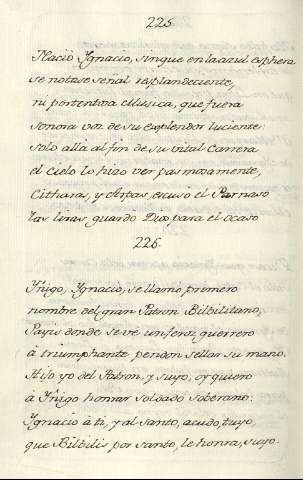 225.
Nacio Ygnacio, sin que en la azul esphera
se notase señal resplandeciente,
ni portentosa Musica, que fuera
sonora voz de su explendor luciente:
solo allà al fin de su vital Carrera
el cielo lo hizo ver pasmosamente,
Citharas, y Arpas escusó el Parnaso
las liras guardo Dios para el ocaso
226.
Yñigo, Ygnacio, se llamó primero
nombre del gran Patron Bilbilitano,
Payis donde se vé un feroz guerrero
à triumphante pendon sellar su mano.
Hijo yo del Patron, y suyo, oy quiero
à Yñigo honrar soldado soberano:
Ygnacio à ti, y al santo, acudo, tuyo,
que Bilbilis por santo, le honra, suyo.